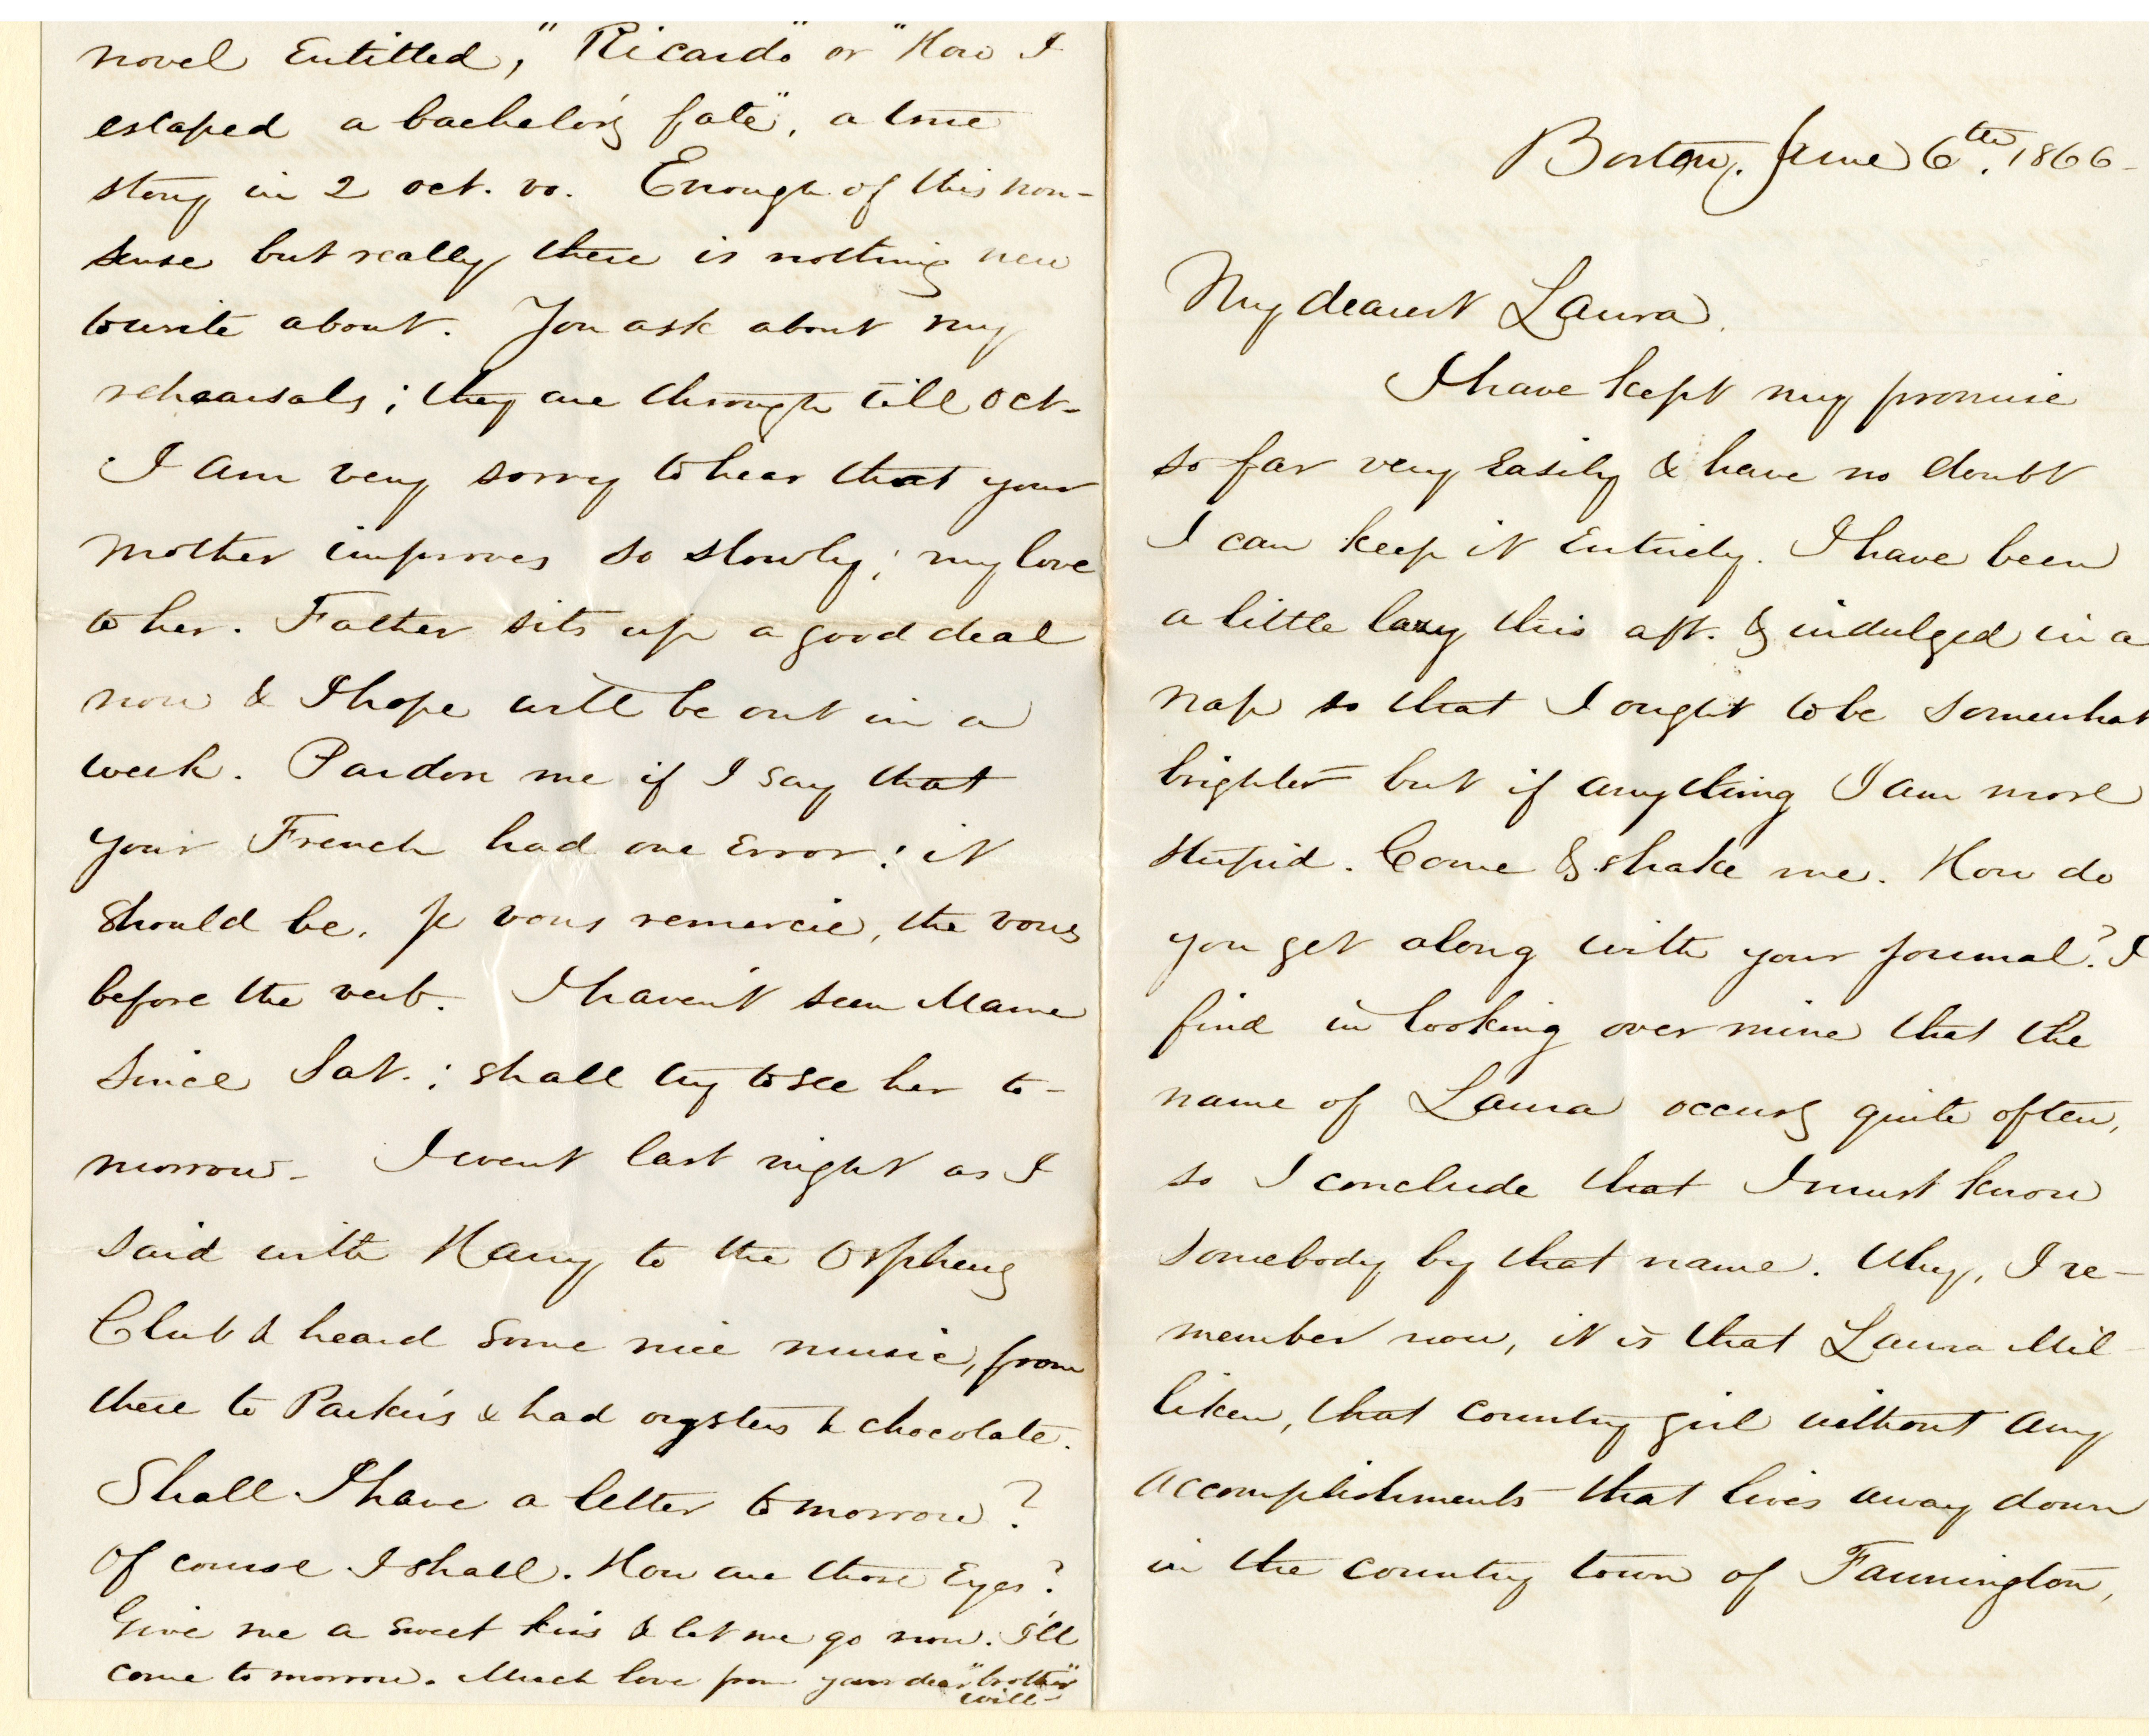 novel Entitled, "Ricardo" or "How I
escaped a bachelor's fate", a true
story in 2 oct. vo. Enough of this non-
sense but really there is nothing new
to write about. You ask about my
rehearsals; they are through till Oct-
I am very sorry to hear that your
mother improves so slowly; my love
to her. Father sits up a good deal
now & I hope will be out in a
week. Pardon me if I say that
your French had one Error: it
should be. Je vous remercie, the vous
before the verb. I haven't seen Mame
since Sat.; shall try to see her to-
morrow- I went last night as I
said with Harry to the Orpheus
Club & heard some nice music, from
there to Parker's & had oysters & chocolate.
Shall I have a letter tomorrow?
Of course I shall. How are those Eyes?
Give me a sweet kiss & let me go now. I'll
come tomorrow. Much love from your dear "brother"
Will-
Boston, June 6th. 1866-
My dearest Laura.
I have kept my promise
so far very Easily & have no doubt
I can keep it Entirely. I have been
a little lazy this aft. & indulged in a
nap so that I ought to be somewhat
brighter but if anything I am more
stupid. Come & shake me. How do
you get along with your journal? I
find in looking over mine that the
name of Laura occurs quite often,
so I conclude that I must know
somebody by that name. Why, I re-
member now, it is that Laura Mil-
liken, that country girl without any
accomplishments that lives away down
in the country town of Farmington,